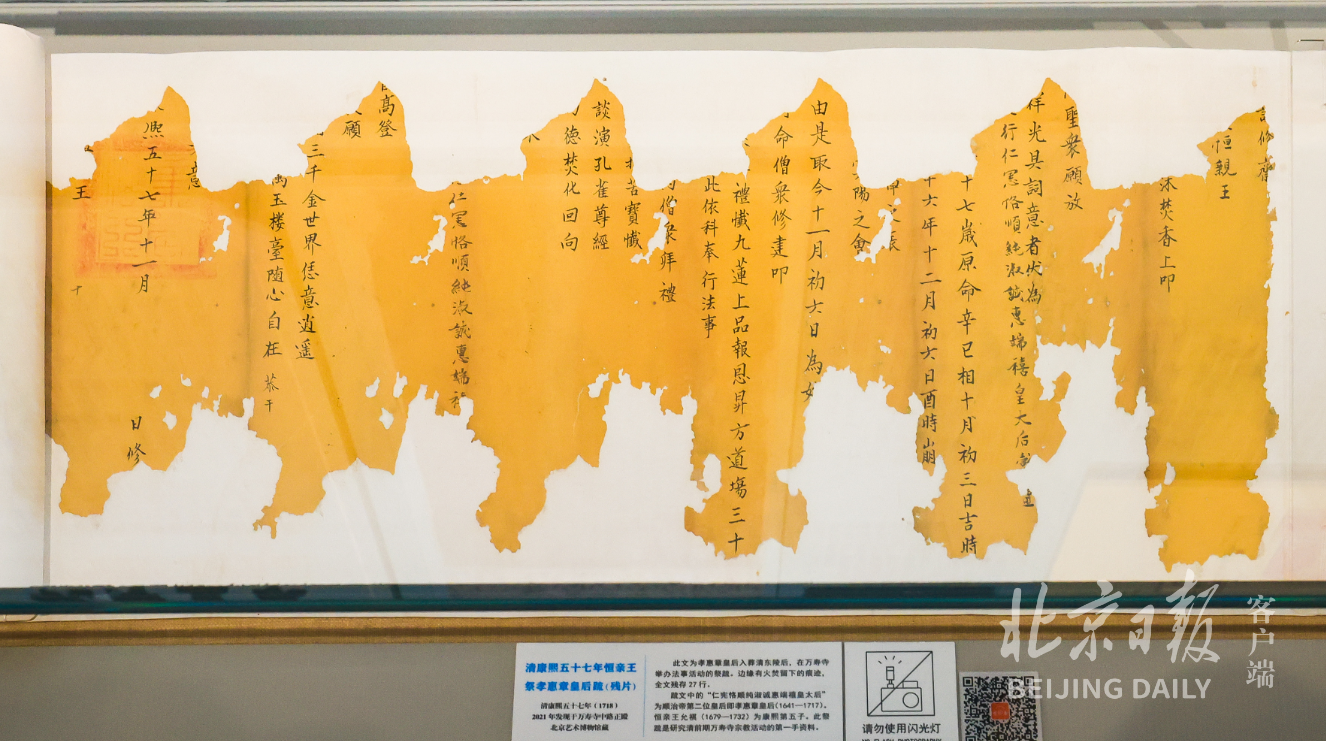 恒親王
沐焚香上叩
聖衆願放
祥光具詞意者伏為
行仁憲恪順純淑誠惠端禧皇太后
十七歲原命辛巳相十月初三日吉時
十六年十二月初六日酉時崩
陽之會
由是取今十一月初六日為始
命僧衆修建叩
禮懺九蓮上品報恩昇方道塲三十
此依科奉行法事
僧衆拜禮
吉寶懺
談演孔雀尊經
德焚化回向
仁憲恪順純淑誠惠端
高登
願
三千金世界恁意逍遥
玉楼臺随心自在
意
熈五十七年十一月
日修
王
清康熙五十七年恒亲王
祭孝惠章皇后疏(残片)
清康熙五十七年(1718)
2021年发现于万寿寺中路正殿
北京艺术博物馆藏
此文为孝惠章皇后入葬清东陵后，在万寿寺
举办法事活动的祭疏。边缘有火焚留下的痕迹，
全文残存27行。
疏文中的“仁宪恪顺纯淑诚惠端禧皇太后”
为顺治帝第二位皇后即孝惠章皇后(1641—1717)。
恒亲王允祺(1679—1732)为康熙第五子。此祭
疏是研究清前期万寿寺宗教活动的第一手资料。
请勿使用闪光灯
北京日报
客户端
BEIJING DAILY